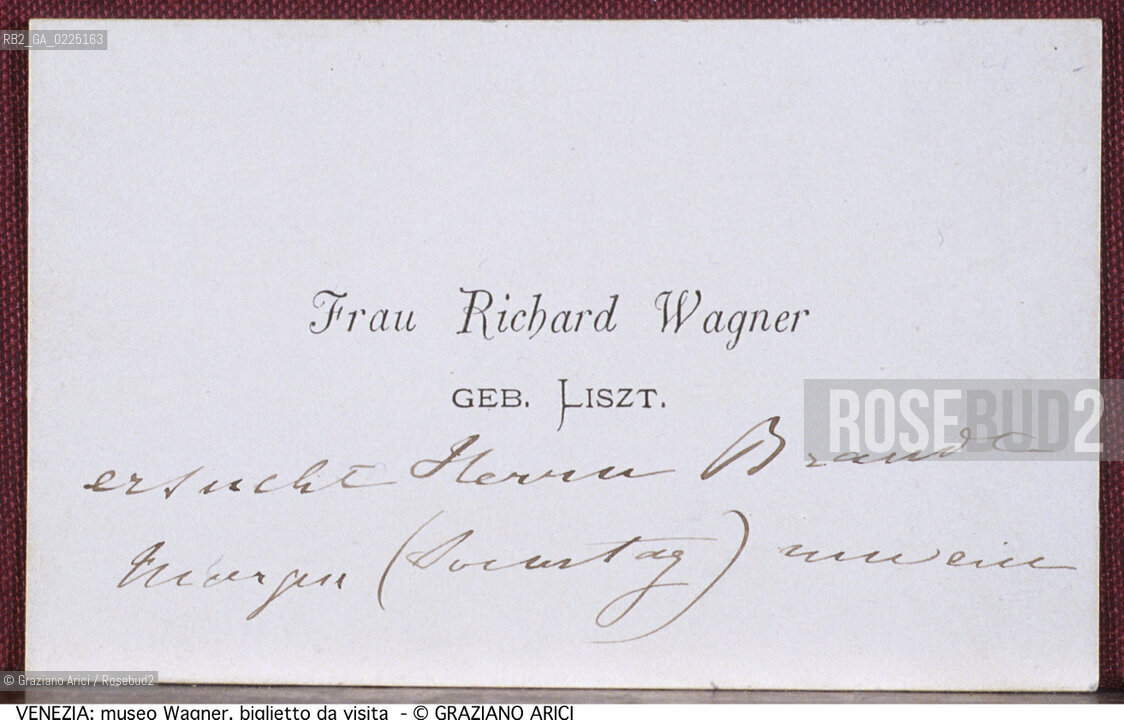 RB2_GA_0225163
Frau Richard Wagner
GEB. LISZT.
ROSEBUD2
ersucht Herrn Brandt
Morgen (Sonntag) um ein
© Graziano Arici / Rosebud2
VENEZIA: museo Wagner, biglietto da visita - © GRAZIANO ARICI